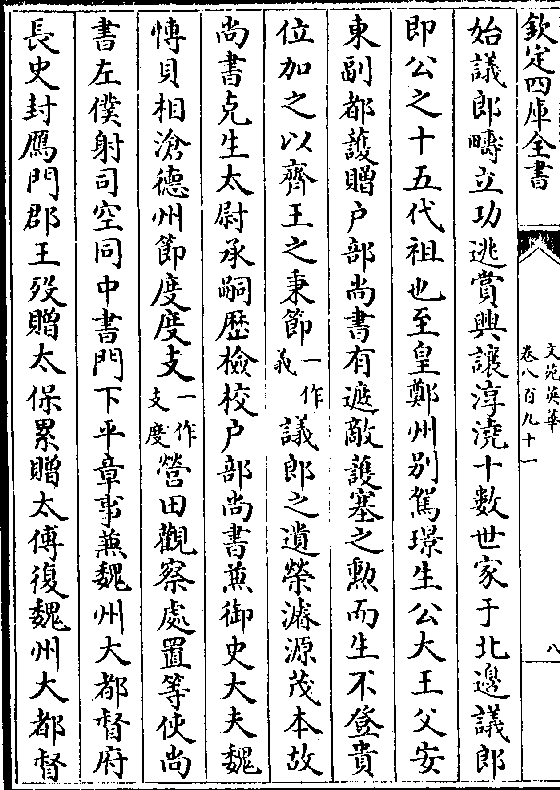 欽定四庫全書
文苑英華
卷八百九十一
八
始議郎疇立功逃賞興讓淳澆十數世家于北邊議郎
即公之十五代祖也至皇鄭州别駕璟生公大王父安
東副都護贈户部尚書有遮敵護塞之勲而生不登貴
位加之以齊王之秉節一作義議郎之遺榮濬源茂本故
尚書克生太尉承嗣歴檢校户部尚書兼御史大夫魏
愽貝相滄德州節度度支一作支度營田觀察處置等使尚
書左僕射司空同中書門下平章事兼魏州大都督府
長史封鴈門郡王歿贈太保累贈太傅復魏州大都督